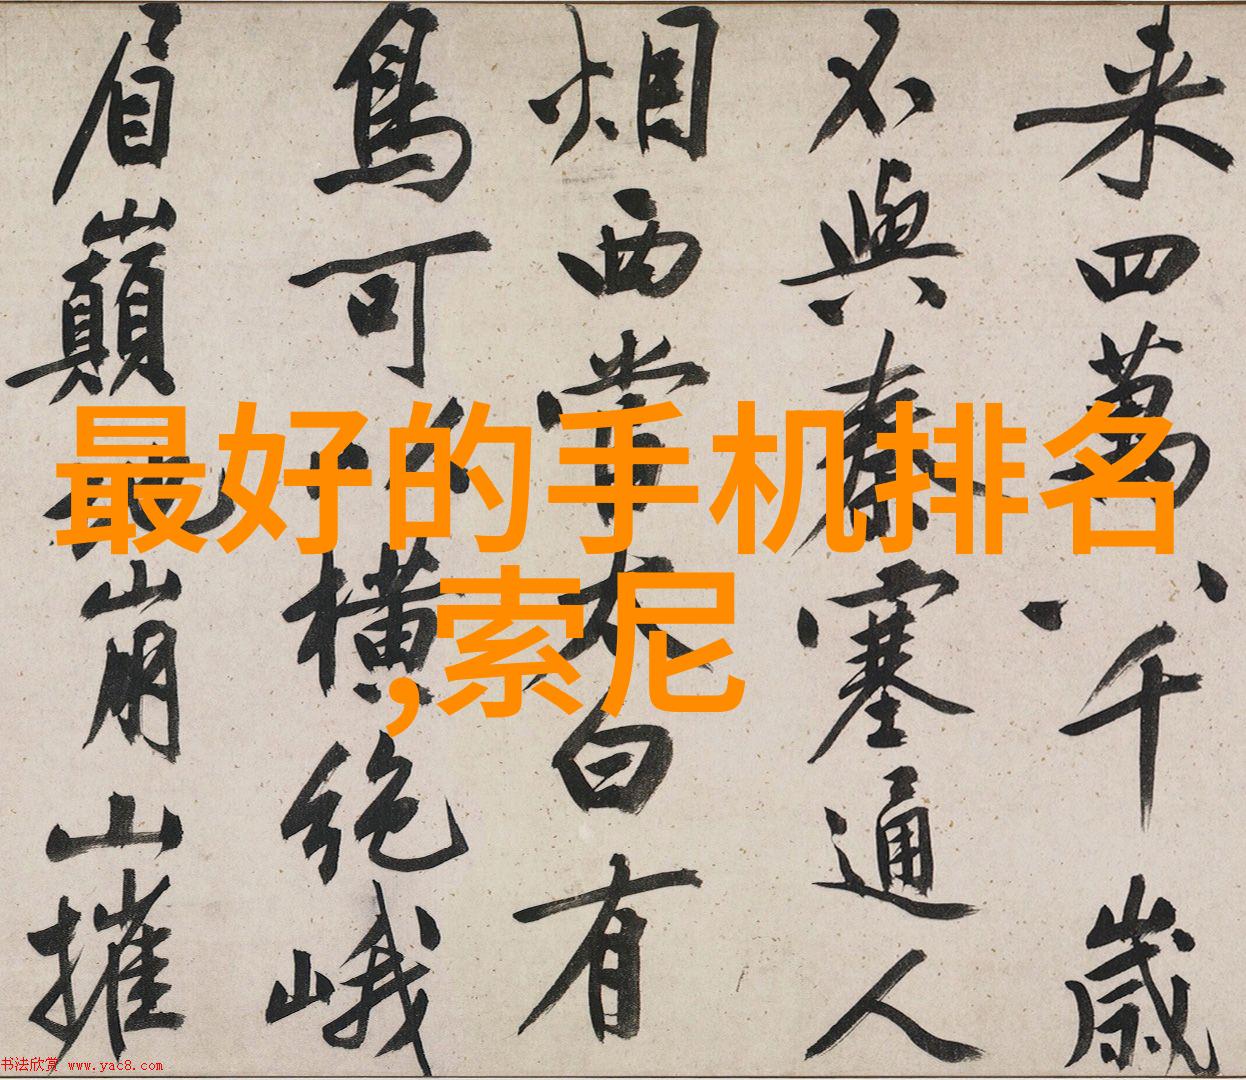 来四萬八千歲
不與秦塞通人
烟西當太白有
鳥可以橫絶峨
眉巔地崩山摧
最好的手机排名
,索尼
书法欣赏 www.yac8.com